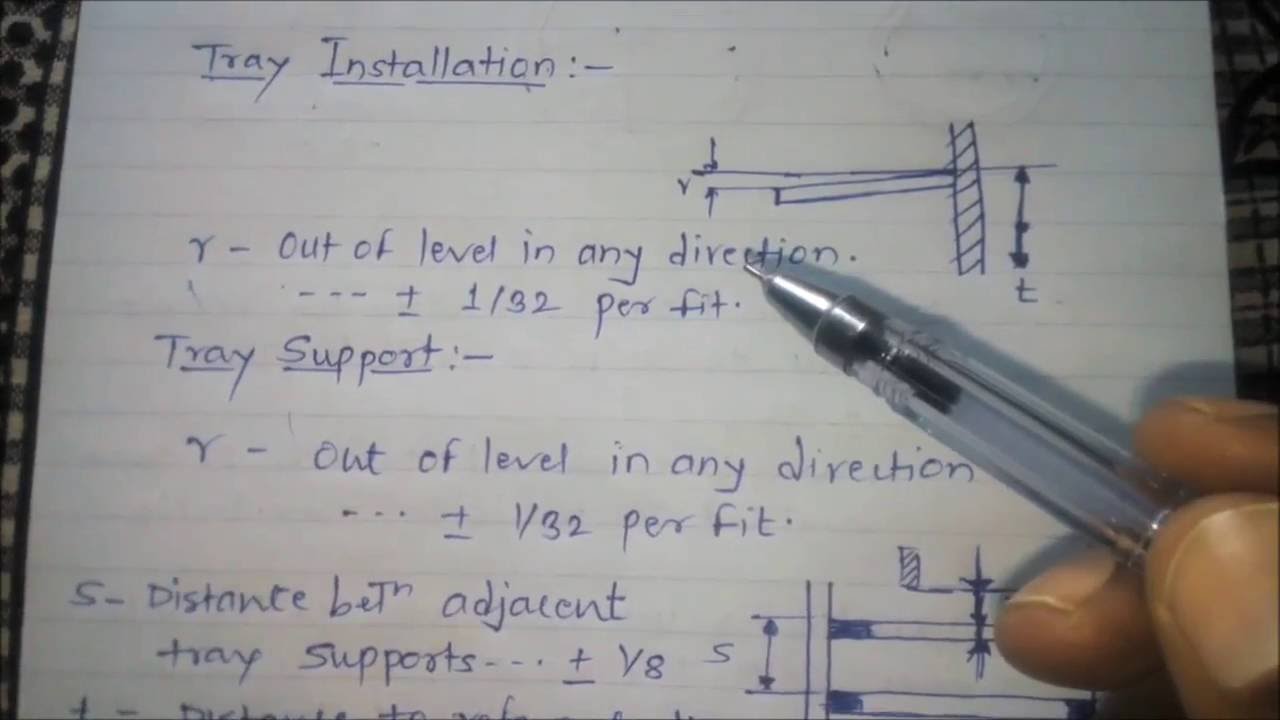 Tray Installation:-
r
r - out of level in any direction.
--- ± 1/32 per fit.
t
Tray Support:-
r - out of level in any direction
--- ± 1/32 per fit.
S- Distance beTn adjacent
tray supports--- ± 1/8
S
t - Distance to